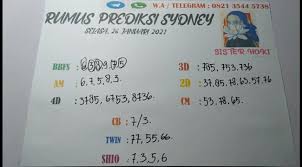 W.A / TELEGRAM : 0821 3544 5738
RUMUS PREDIKSI SYDNEY
SELASA, 26 JANUARI 2021
SISTER HOKI
BBFS :
AM : 6,7,5,8,3.
4D : 3785, 6753, 8736.
CB : 7/3.
TWIN : 77,55,66.
SHIO : 7,3,5,6
3D : 785, 753, 736
2D : 37,85,78,63,57,76
CM : 53,78,65.